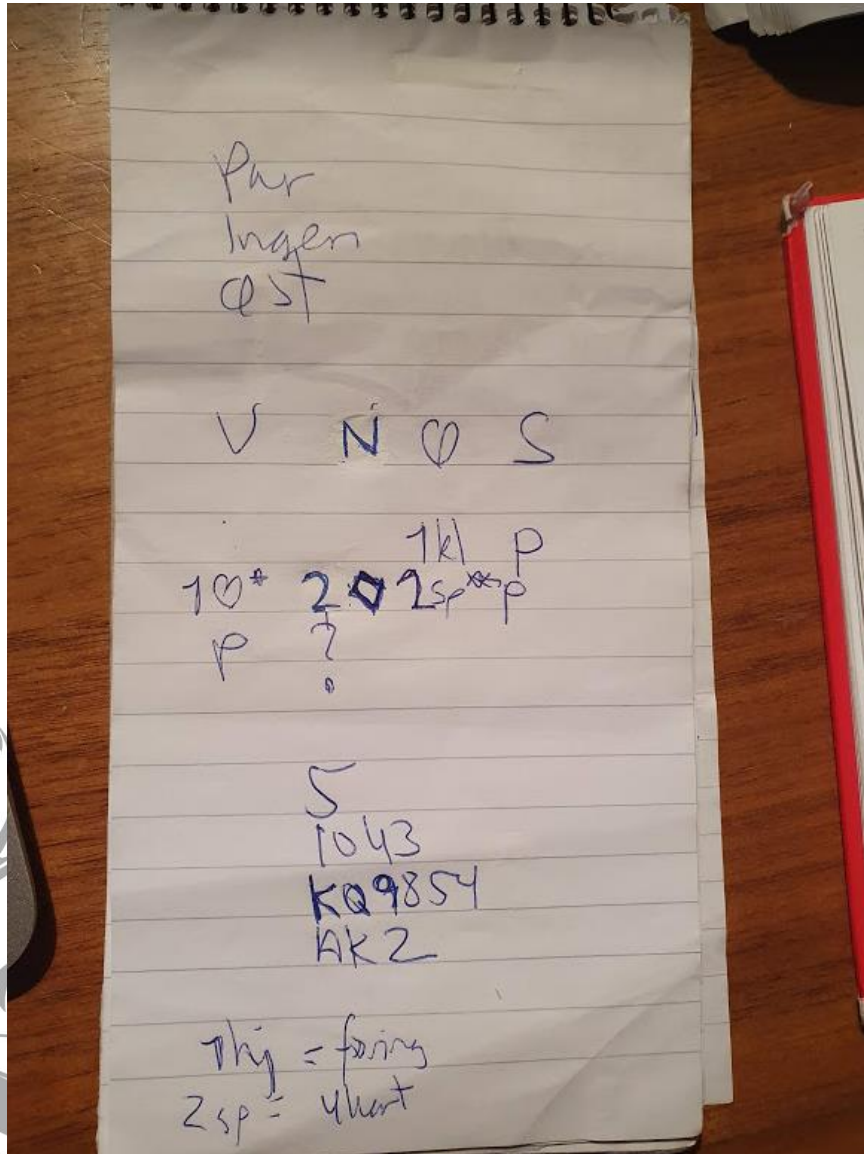 Par
Ingen
ØST
V N Ø S
1kl P
1♡* 2♢ 2sp** p
P ?
5
1043
KQ9854
AK2
1hj =føring
2sp = 4kort